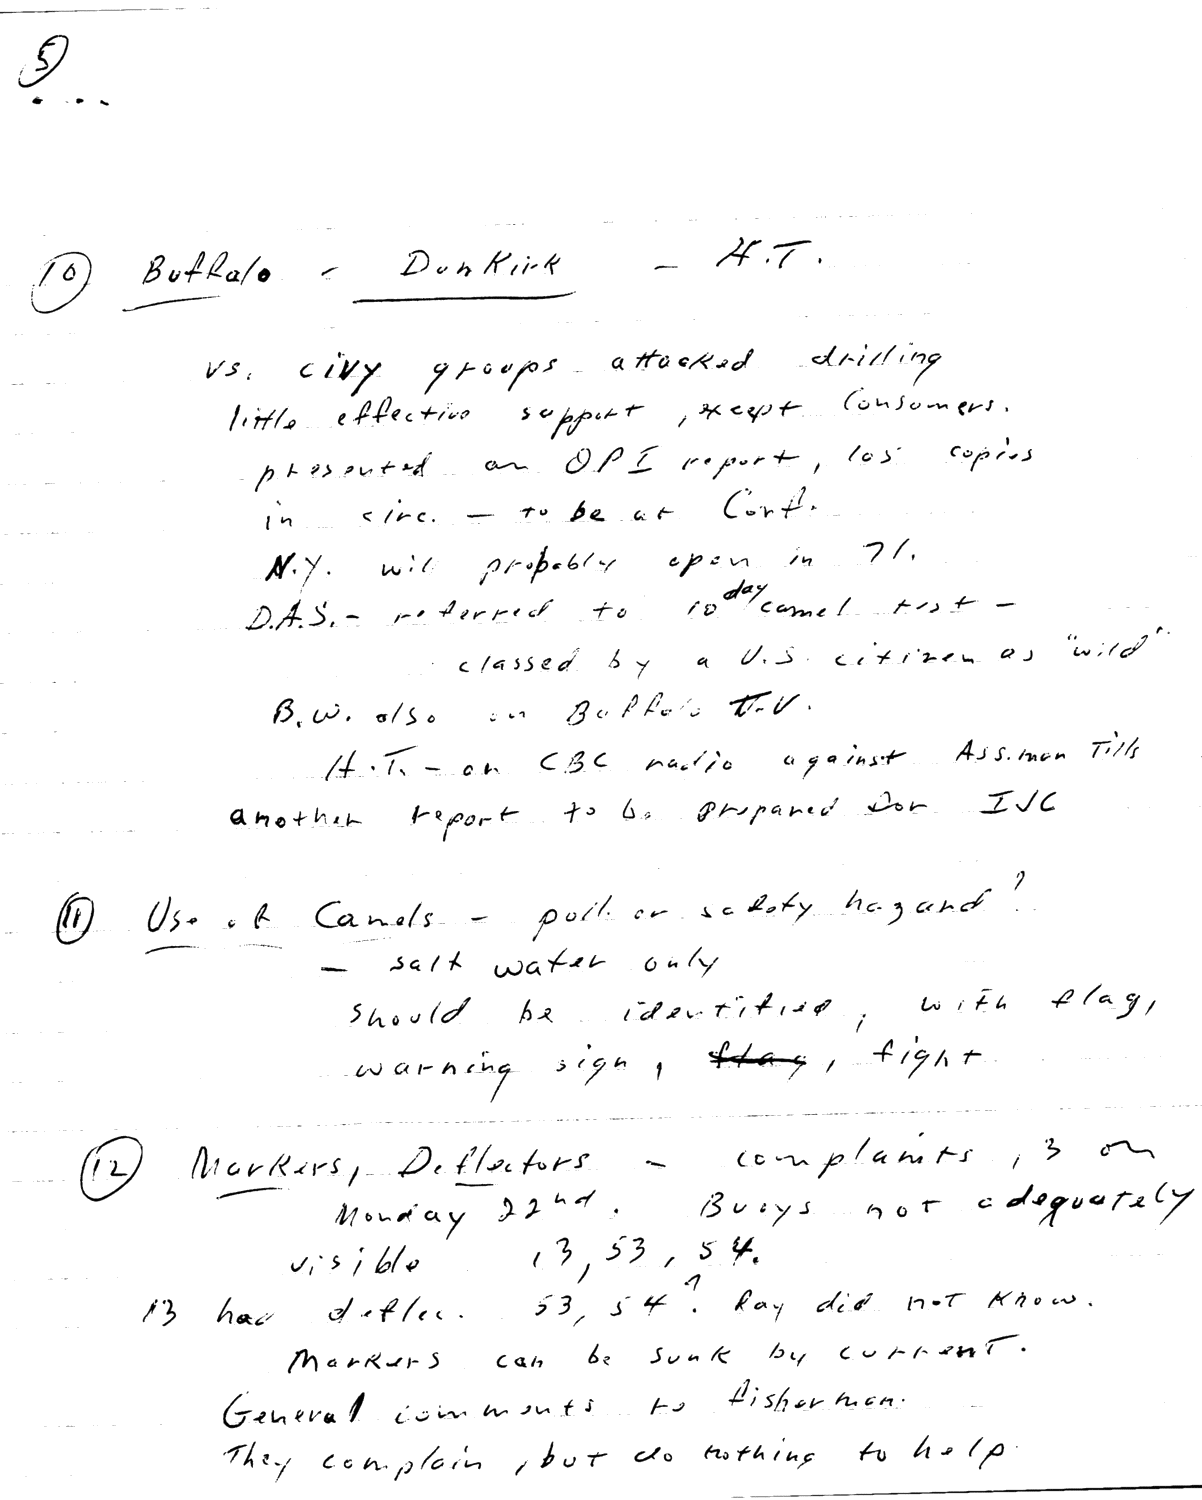 5
10 Buffalo - Dunkirk - H.T.
vs. civy groups attacked drilling
little effective support, except Consumers.
presented an OPI report, copies
in circ. - to be at Conf.
N.Y. will probably open in 71.
D.A.S. - referred to 10 day camel test -
classed by a U.S. citizen as "wild"
B.W. also on Buffalo T.V.
H.T. - on CBC radio against Ass.man Tills
another report to be prepared for IJC
11 Use of Camels - poll. or safety hazard?
- salt water only
should be identified, with flag,
warning sign, flag, light
12 Markers, Deflectors - complaints, 3 on
Monday 22nd. Buoys not adequately
visible 13, 53, 54.
13 had deflec. 53, 54? Ray did not know.
Markers can be sunk by current.
General comments to fisherman.
They complain, but do nothing to help